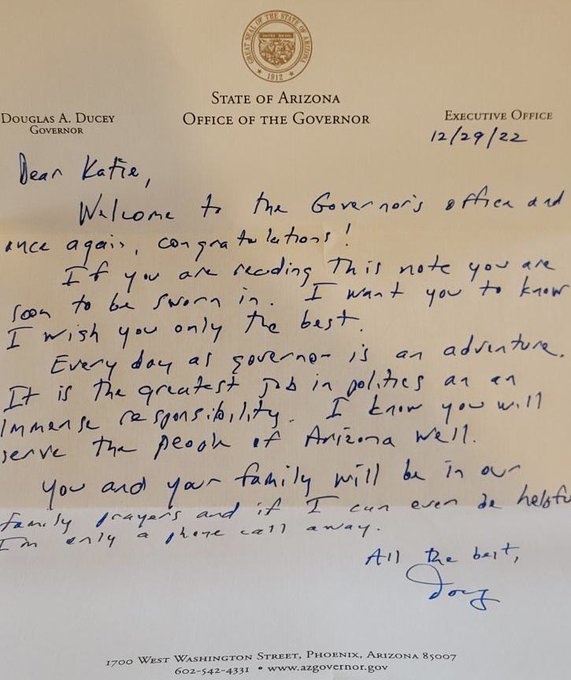 GREAT SEAL OF THE STATE OF ARIZONA
1912
STATE OF ARIZONA
DOUGLAS A. DUCEY
GOVERNOR
OFFICE OF THE GOVERNOR
EXECUTIVE OFFICE
12/29/22
Dear Katie,
Welcome to the Governor's office and
once again, congratulations!
If you are reading this note you are
soon to be sworn in. I want you to know
I wish you only the best.
Every day as governor is an adventure.
It is the greatest job in politics an an
immense responsibility. I know you will
serve the people of Arizona well.
You and your family will be in our
family prayers and if I can ever be helpful
I'm only a phone call away.
All the best,
Doug
1700 WEST WASHINGTON STREET, PHOENIX, ARIZONA 85007
602-542-4331 • www.azgovernor.gov